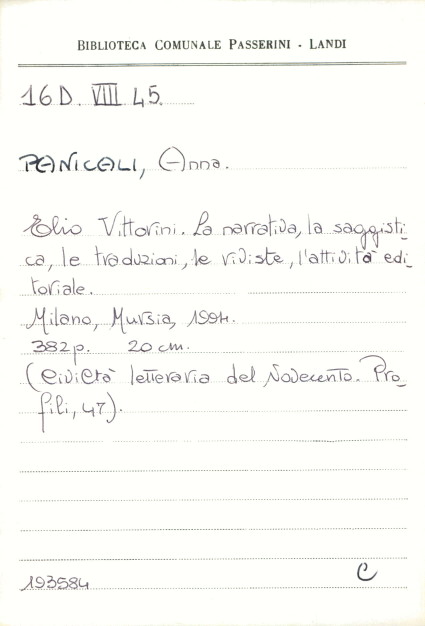 BIBLIOTECA COMUNALE PASSERINI - LANDI
16 D. VIII 45.
PANICALI, Anna.
Elio Vittorini. La narrativa, la saggisti-
ca, le traduzioni, le riviste, l'attività edi-
toriale.
Milano, Mursia, 1994.
382 p. 20 cm.
(Civiltà letteraria del Novecento. Pro-
fili, 47).
193584
C